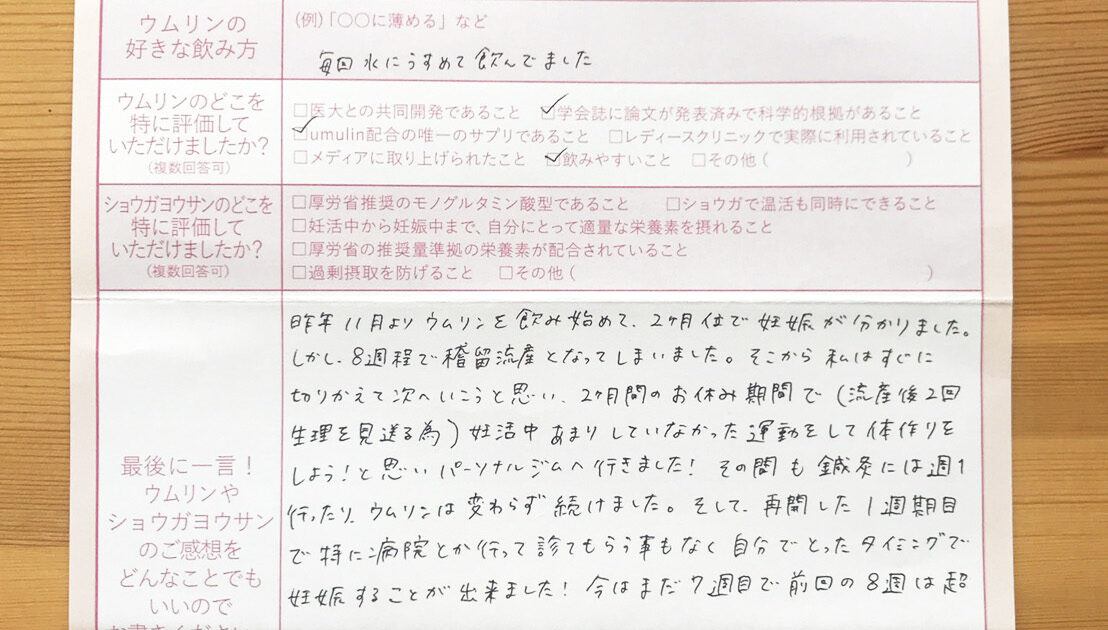 ウムリンの
好きな飲み方
(例)「〇〇に薄める」など
毎回 水にうすめて飲んでました
ウムリンのどこを
特に評価して
いただけましたか?
(複数回答可)
□医大との共同開発であること ☑学会誌に論文が発表済みで科学的根拠があること
☑umulin配合の唯一のサプリであること □レディースクリニックで実際に利用されていること
□メディアに取り上げられたこと ☑飲みやすいこと □その他( )
ショウガヨウサンのどこを
特に評価して
いただけましたか?
(複数回答可)
□厚労省推奨のモノグルタミン酸型であること □ショウガで温活も同時にできること
□妊活中から妊娠中まで、自分にとって適量な栄養素を摂れること
□厚労省の推奨量準拠の栄養素が配合されていること
□過剰摂取を防げること □その他( )
最後に一言!
ウムリンや
ショウガヨウサン
のご感想を
どんなことでも
いいので
昨年11月よりウムリンを飲み始めて、2ヶ月位で妊娠が分かりました。
しかし、8週程で稽留流産となってしまいました。そこから私はすぐに
切りかえて次へいこうと思い、2ヶ月間のお休み期間で(流産後2回
生理を見送る為)妊活中あまりしていなかった運動をして体作りを
しよう!と思いパーソナルジムへ行きました!その間も鍼灸には週1
行ったり、ウムリンは変わらず続けました。そして、再開した1週期目
で特に病院とか行って診てもらう事もなく自分でとったタイミングで
妊娠することが出来ました!今はまだ7週目で前回の8週は超